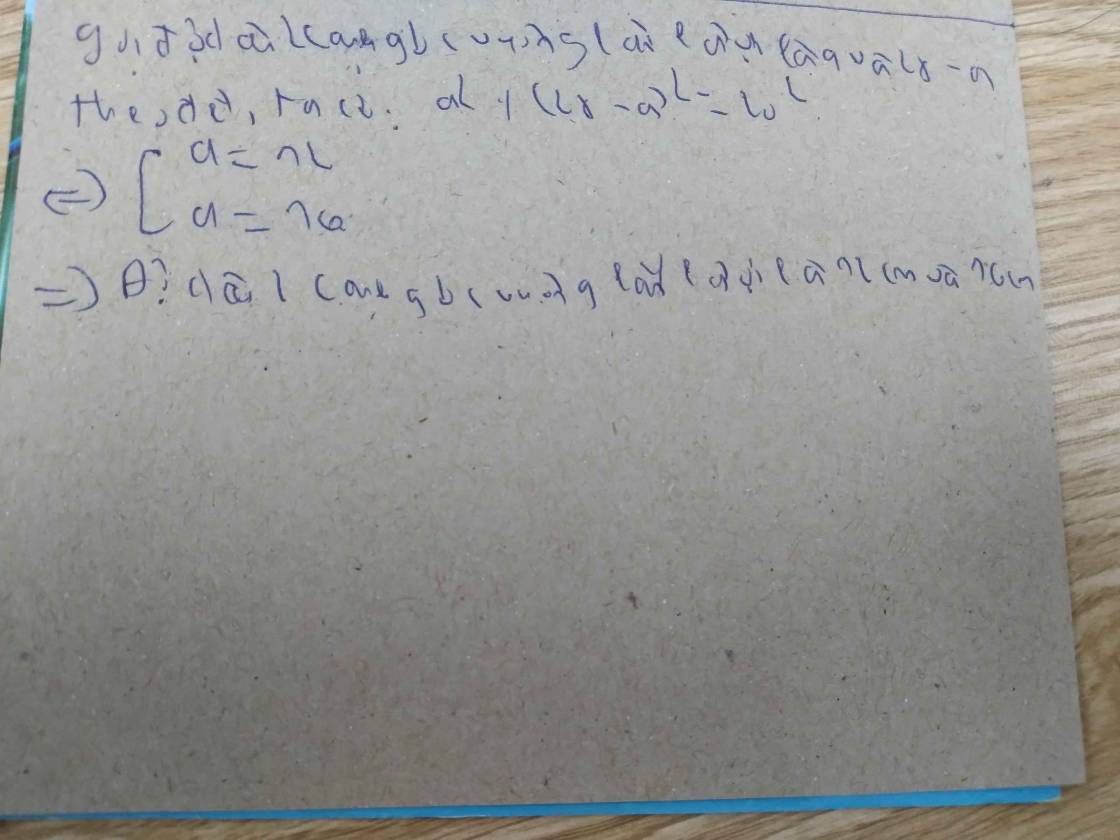 gọi độ dài 2 cạnh góc vuông lần lượt là a và 28 - a
theo đề, ta có: a² + (28 - a)² = 20²
⇔ [ a = 12
a = 16
⇒ Độ dài 2 cạnh góc vuông lần lượt là 12cm và 16cm